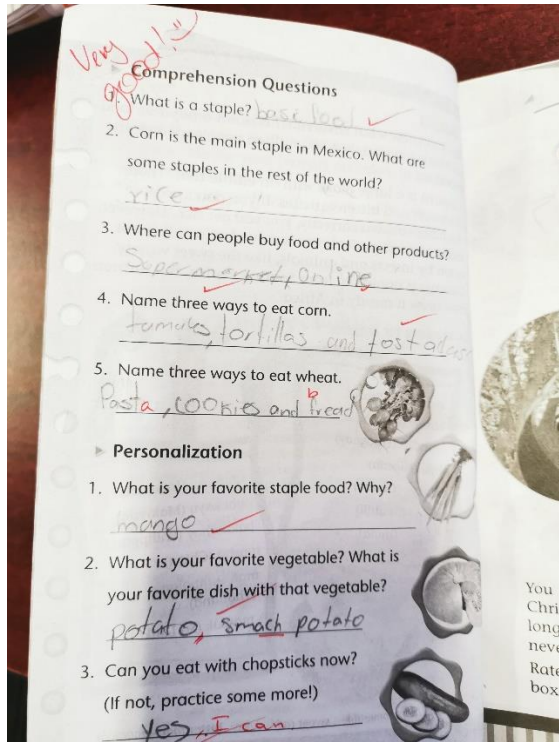 Very
good!
Comprehension Questions
1. What is a staple? base food
2. Corn is the main staple in Mexico. What are
some staples in the rest of the world?
rice
3. Where can people buy food and other products?
Supermarket, Online
4. Name three ways to eat corn.
tamales, tortillas and tostadas
5. Name three ways to eat wheat.
Pasta, cookies and bread
Personalization
1. What is your favorite staple food? Why?
mango
2. What is your favorite vegetable? What is
your favorite dish with that vegetable?
potato, smach potato
3. Can you eat with chopsticks now?
(If not, practice some more!)
yes, I can
You
Chri
long
neve
Rate
box